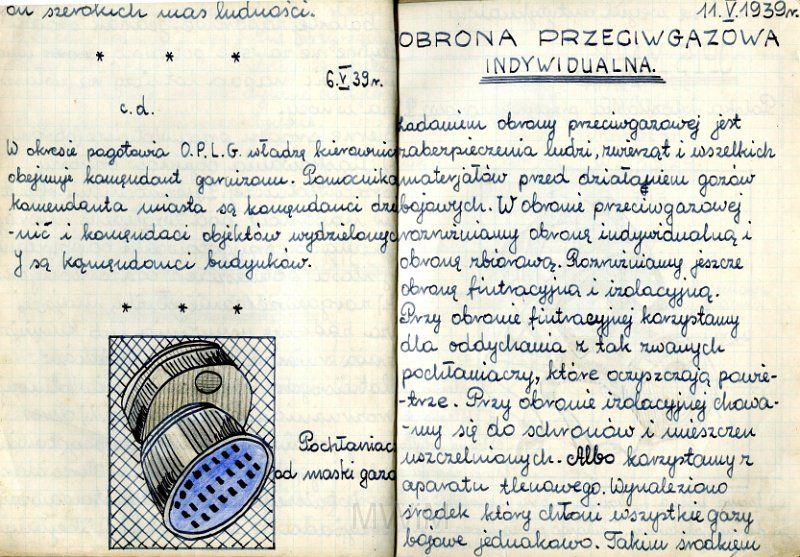 on szerokich mas ludności.
* * *
6.V.39r.
c.d.
W okresie pogotowia O.P.L.G. władzę kierownic
obejmuje komendant garnizonu. Pomocnika
komendanta miasta są komendanci dzie
-nic i komendaci objektów wydzielonyc
J są komendanci budynków.
* * *
Pochłaniac
od maski gazo
11.V.1939r.
OBRONA PRZECIWGAZOWA
INDYWIDUALNA.
Zadaniem obrony przeciwgazowej jest
zabezpieczenia ludzi, zwierząt i wszelkich
materjałów przed działaniem gazów
bojowych. W obronie przeciwgazowej
rozróżniamy obronę indywidualną i
obronę zbiorową. Rozróżniamy jeszcze
obronę fintracyjną i izolacyjną.
Przy obronie fintracyjnej korzystamy
dla oddychania z tak zwanych
pochłaniaczy, które oczyszczają powie-
-trze. Przy obronie izolacyjnej chowa-
-my się do schronów i mieszczeń
uszczelnionych. Albo korzystamy z
aparatu tlenowego. Wynaleziono
środek który chłoni wszystkie gazy
bojowe jednakowo. Takim środkiem
MWM